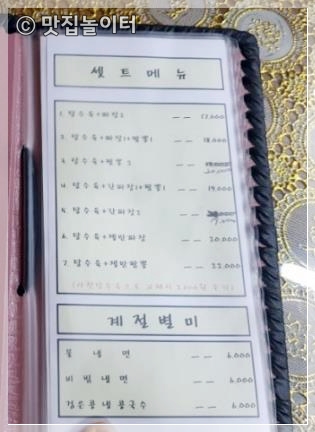 © 맛집놀이터
셋트메뉴
1. 탕수육+짜장2 -- 17,000
2. 탕수육+짜장1+짬뽕1 -- 18,000
3. 탕수육+짬뽕2 -- 20,000
4. 탕수육+간짜장1+짬뽕1 -- 19,000
5. 탕수육+간짜장2 --
6. 탕수육+쟁반짜장 -- 20,000
7. 탕수육+쟁반짬뽕 -- 22,000
계절별미
물냉면 -- 6,000
비빔냉면 -- 6,000
검은콩냉콩국수 -- 6,000